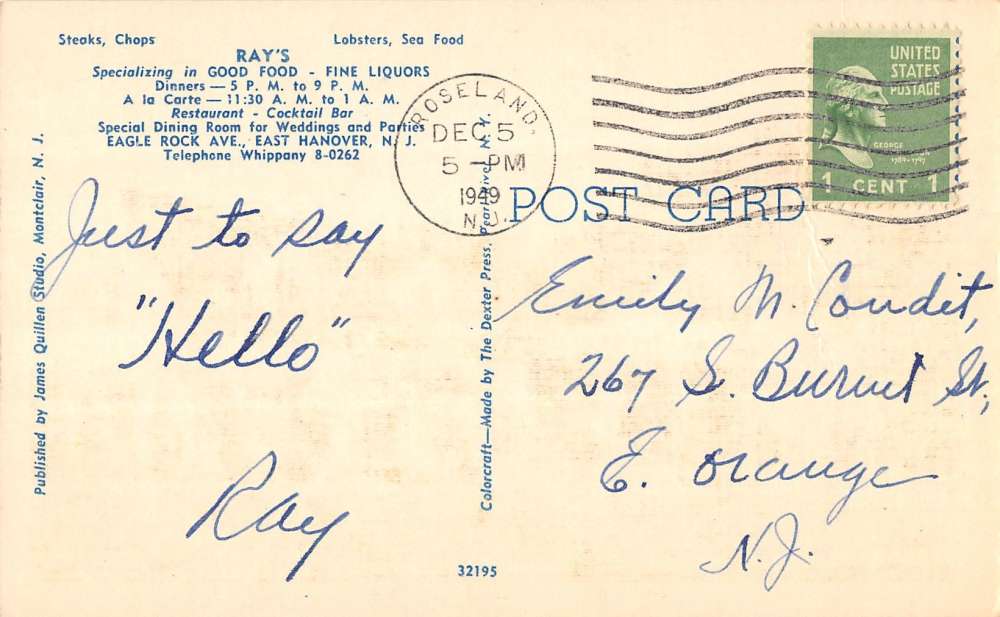 Steaks, Chops
Lobsters, Sea Food
RAY'S
Specializing in GOOD FOOD - FINE LIQUORS
Dinners — 5 P. M. to 9 P. M.
A la Carte — 11:30 A. M. to 1 A. M.
Restaurant - Cocktail Bar
Special Dining Room for Weddings and Parties
EAGLE ROCK AVE., EAST HANOVER, N. J.
Telephone Whippany 8-0262
ROSELAND,
DEC 5
5 - PM
1949
N.J.
UNITED
STATES
POSTAGE
GEORGE
1789-1797
1 CENT 1
POST CARD
Just to say
"Hello"
Ray
Emily M. Condit,
267 S. Burnet St.,
E. Orange
N.J.
Published by James Quillen Studio, Montclair, N. J.
Colorcraft—Made by The Dexter Press, Pearl River, N. Y.
32195